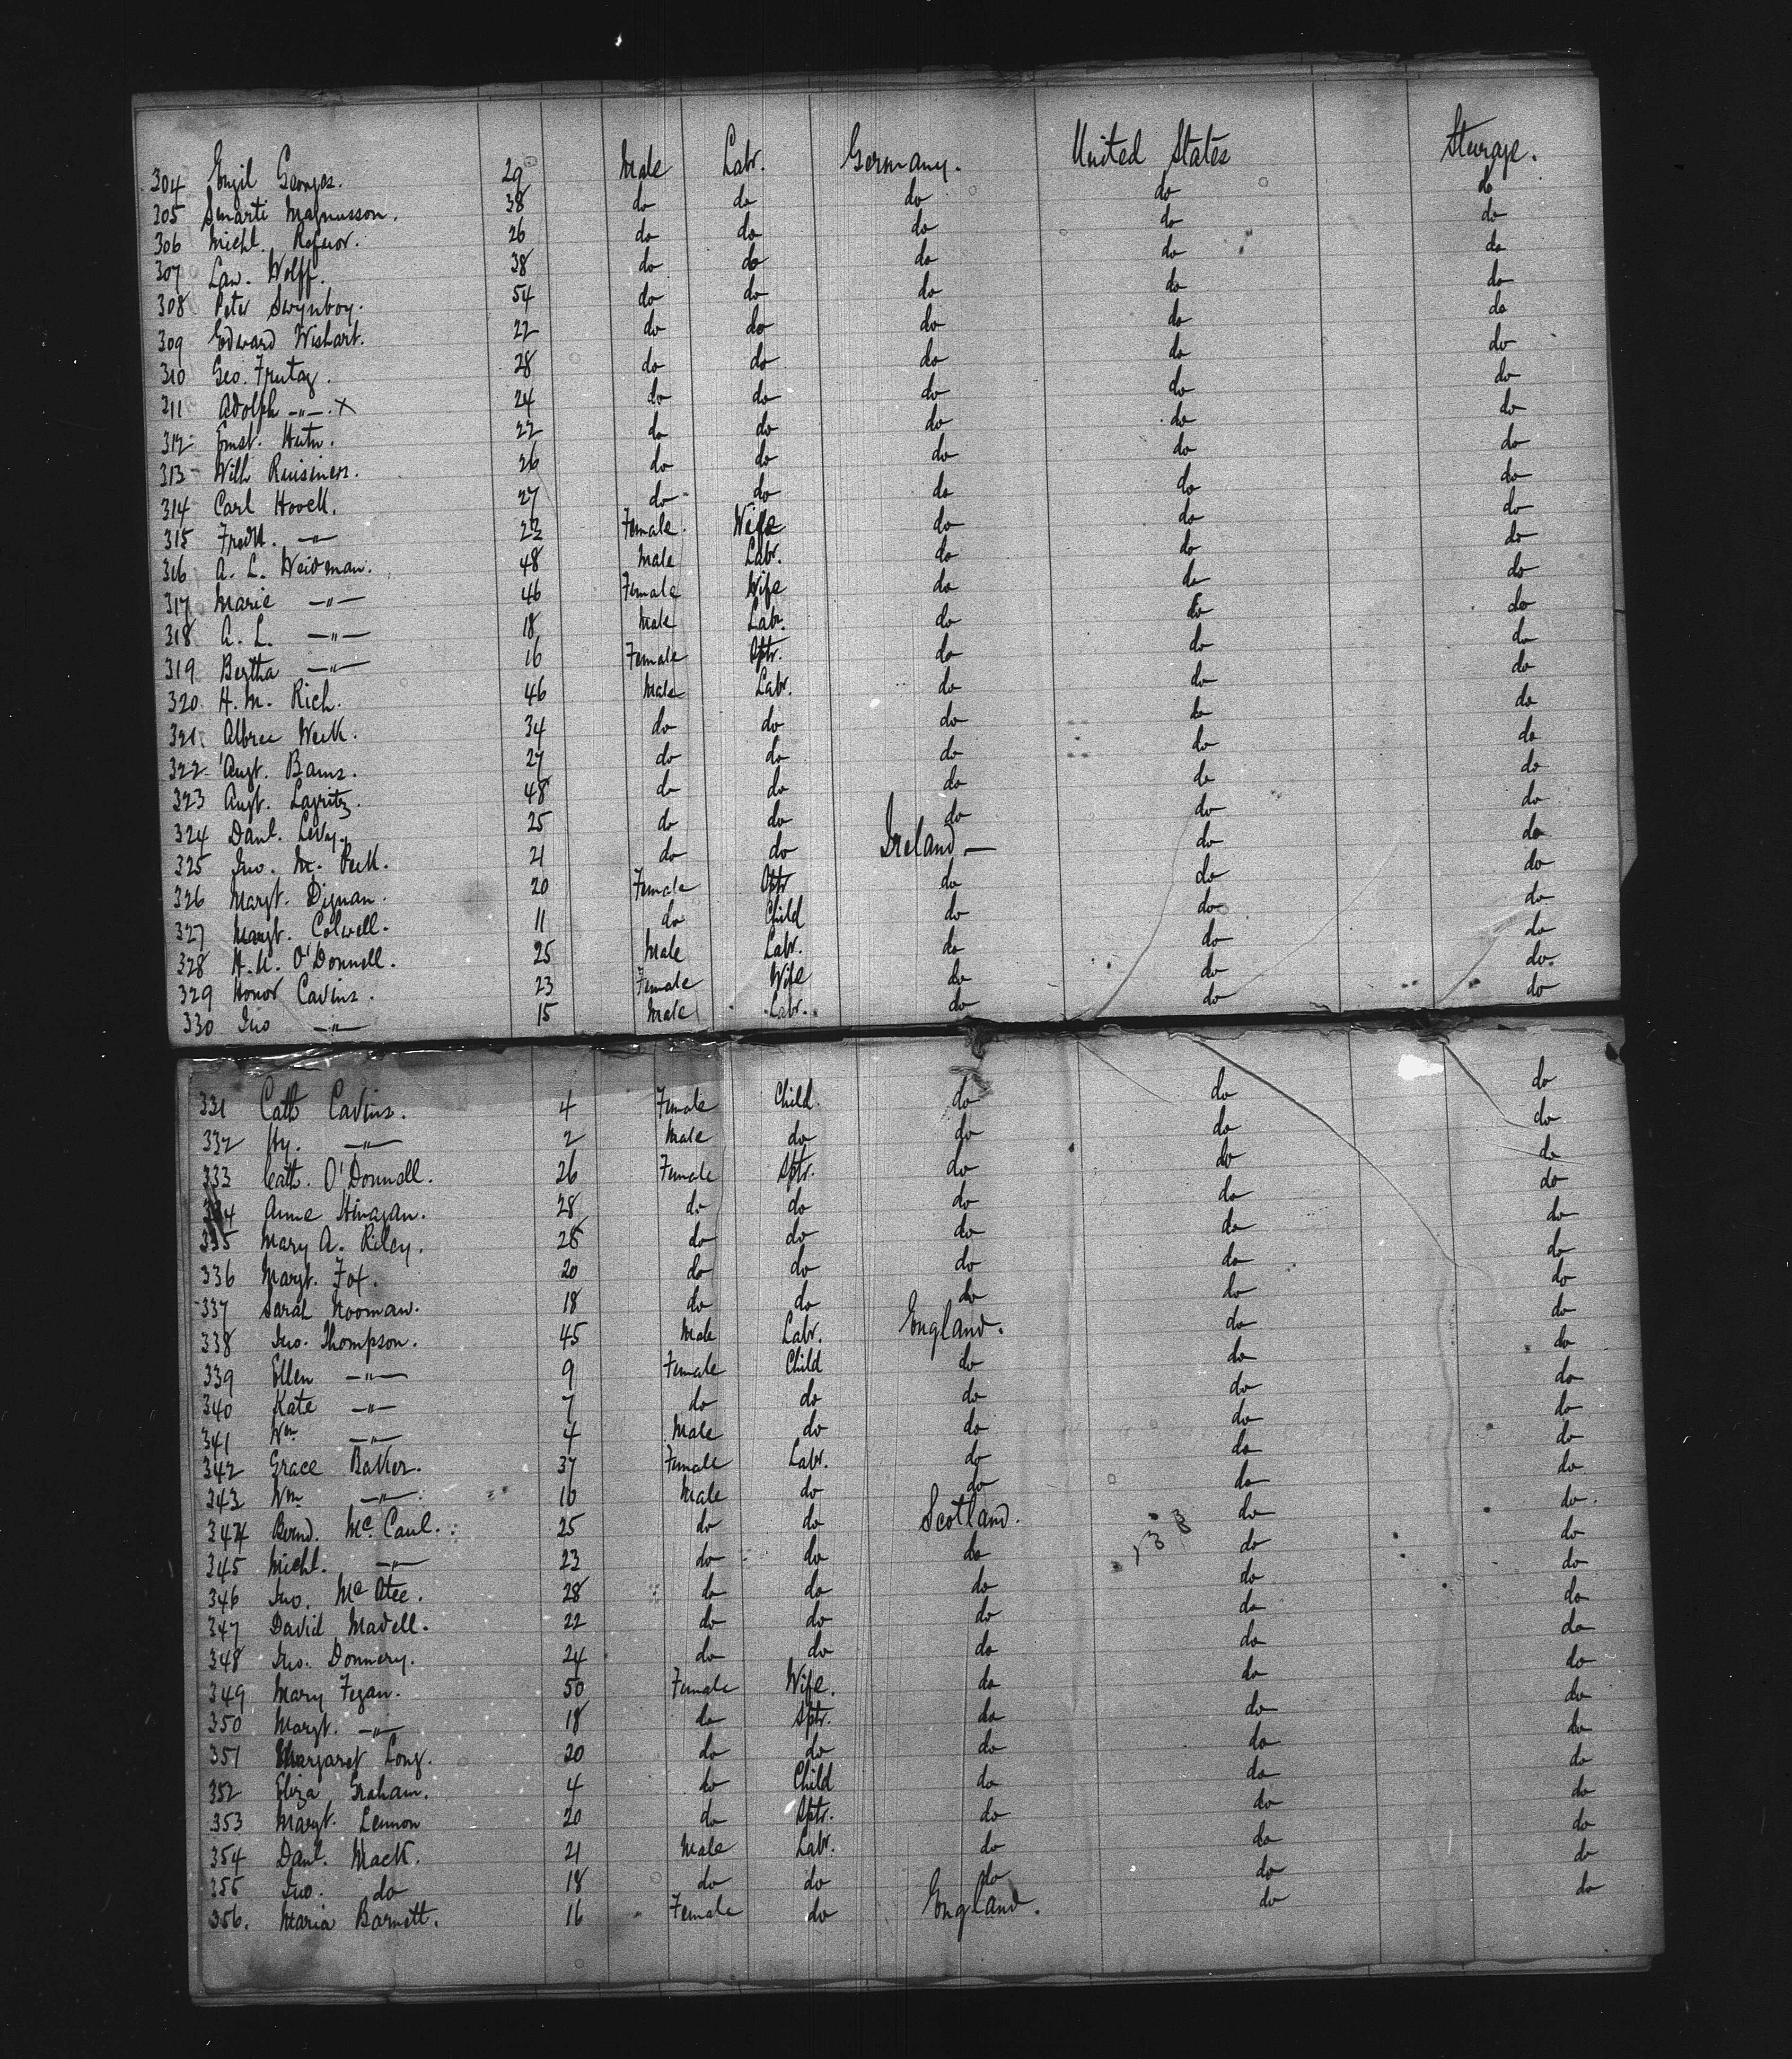 304 Engil Georges. 29 Male Labr. Germany. United States Sturage.
305 Smarte Magnusson. 38 do do do do do
306 Michl. 26 do do do do do
307 Law. Wolff. 38 do do do do do
308 Peter Swynboy. 54 do do do do do
309 Edward Wishart. 22 do do do do do
310 Geo. Frutag. 28 do do do do do
311 Adolph —"—. X 24 do do do do do
312 Ernst. Hutn. 22 do do do do do
313 Wilh 26 do do do do do
314 Carl Hoveck. 27 do do do do do
315 Fredk. —"— 23 Female. Wife do do do
316 A. L. Weidman. 48 Male Labr. do do do
317 Marie —"— 46 Female Wife do do do
318 A. L. —"— 18 Male Labr. do do do
319 Bertha —"— 16 Female Sptr. do do do
320. H. M. Rich. 46 Male Labr. do do do
321 Albree Weck. 34 do do do do do
322 Augt. Bams. 27 do do do do do
323 Augt. Lagritz. 48 do do do do do
324 Danl. Levy. 25 do do do do do
325 Jno. M. Peck. 21 do do Ireland — do do
326 Margt. Dignan. 20 Female Sptr do do do
327 Margt. Colwell. 11 do Child do do do
328 H. H. O'Donnell. 25 Male Labr. do do do
329 Honor Cavins. 23 Female Wife do do do
330 Jno —"— 15 Male Labr. do do do
331 Cath Cavins. 4 Female Child. do do do
332 Hy. —"— 2 Male do do do do
333 Cath. O'Donnell. 26 Female Sptr. do do do
334 Anne Hinagan. 28 do do do do do
335 Mary A. Riley. 28 do do do do do
336 Margt. Fox. 20 do do do do do
337 Sarah Nooman. 18 do do do do do
338 Jno. Thompson. 45 Male Labr. England. do do
339 Ellen —"— 9 Female Child do do do
340 Kate —"— 7 do do do do do
341 Wm —"— 4 Male do do do do
342 Grace Baker. 37 Female Labr. do do do
343 Wm —"— 10 Male do do do do
344 Bernd. Mc. Caul. 25 do do Scotland. do do.
345 Michl. —"— 23 do do do do do
346 Jno. Mc Atee. 28 do do do do do
347 David Madell. 22 do do do do do
348 Jno. Donnery. 24 do do do do do
349 Mary Fegan. 50 Female Wife. do do do
350 Margt. —"— 18 do Sptr. do do do
351 Margaret Long. 20 do do do do do
352 Eliza Graham. 4 do Child do do do
353 Margt. Lennon 20 do Sptr. do do do
354 Danl. Mack. 21 Male Labr. do do do
355 Jno. do 18 do do do do do
356. Maria Barnett. 16 Female do England. do do